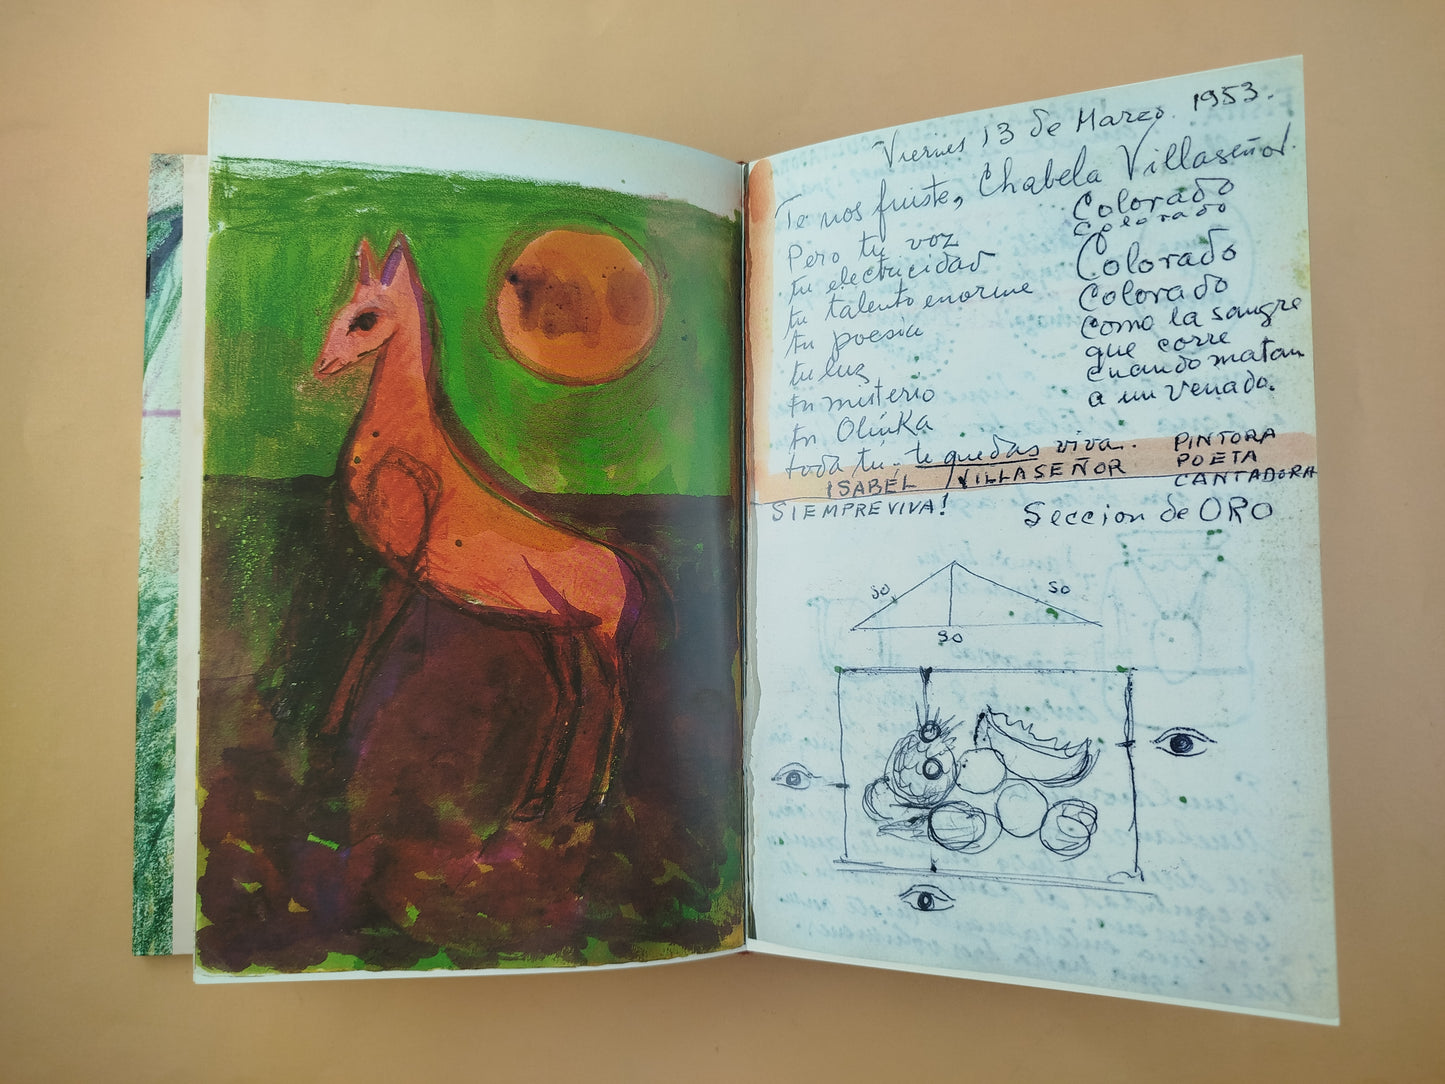 Viernes 13 de Marzo. 1953.
Te nos fuiste, Chabela Villaseñor.
Pero tu voz
tu electricidad
tu talento enorme
tu poesia
tu luz
tu misterio
tu Olinka
toda tu. te quedas viva.
Colorado
Colorado
Colorado
Colorado
Como la sangre
que corre
cuando matan
a un venado.
ISABEL VILLASEÑOR
PINTORA
POETA
CANTADORA
SIEMPRE VIVA!
Seccion de ORO
so
so
so